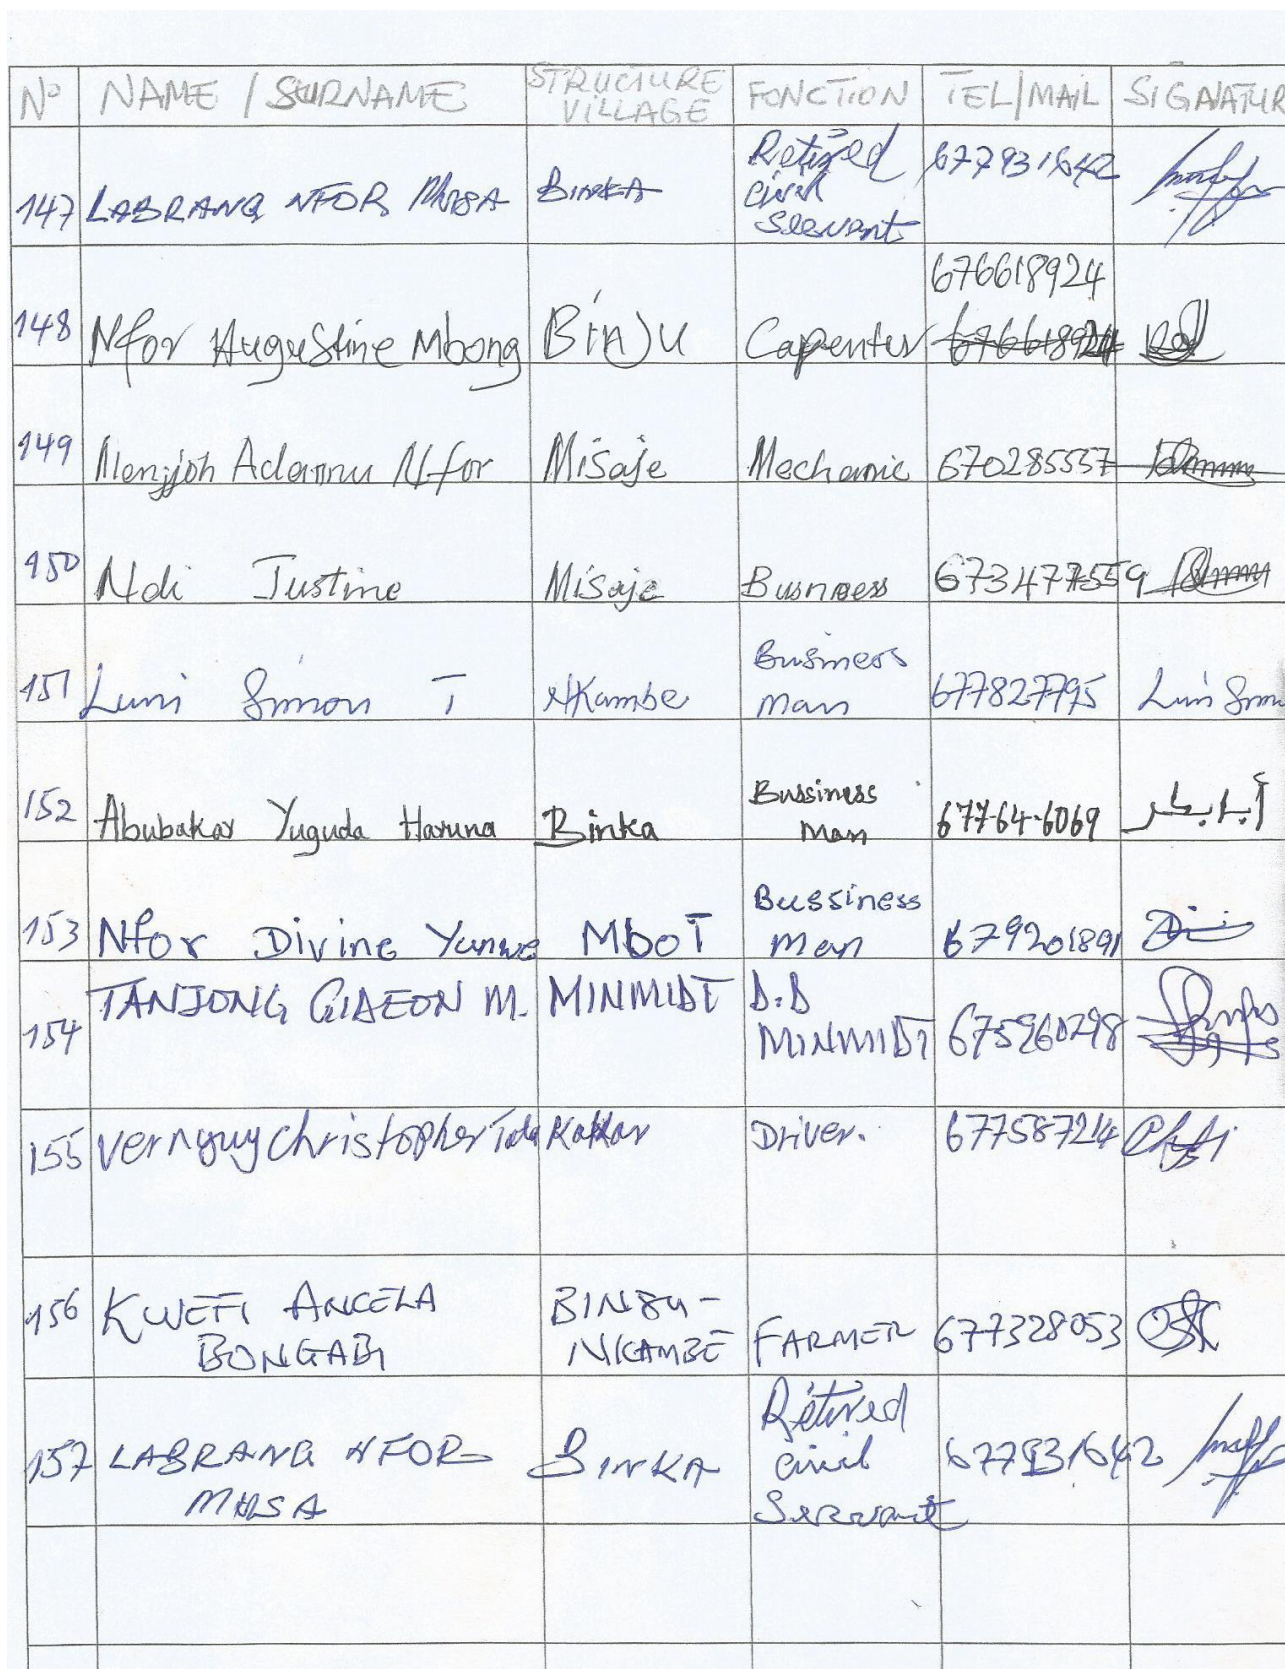 N° NAME / SURNAME STRUCTURE VILLAGE FONCTION TEL/MAIL SIGNATUR
147 LABRANG NFOR MUSA BINKA Retired civil Servant 677931642
676618924
148 Nfor Augustine Mbong Binju Capenter 676618924
149 Adamu Nfor Misaje Mechanic 670285557
150 Ndi Justine Misaje Busness 673477559
151 Luni Simon T Nkambe Business man 677827795 Luni Simon
152 Abubakar Yuguda Haruna Binka Bussiness Man 677-64-6069
153 Nfor Divine Yunwe MboT Bussiness Man 679201891
154 TANJONG GIDEON M. MINMIDT D.D MINMIDT 675960298
155 Vernyuy Christopher Driver. 677587214
156 KWEFI ANGELA BINJU - FARMER 677328053
BONGABI NKAMBE
157 LABRANG NFOR BINKA Retired civil Servant 677931642
MUSA